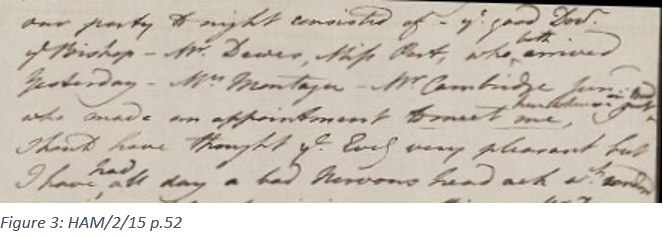 our party to night consisted of - ye. good Dow.
ye Bishop - Mr. Dewes, Miss Port, who both arrived
Yesterday - Mrs Montagu - Mr. Cambridge Junr.
who made an appointment to meet me,
I shd. have thought ye. Eveg very pleasant but
I have had all day a bad Nervous head ach wh. render
Figure 3: HAM/2/15 p.52